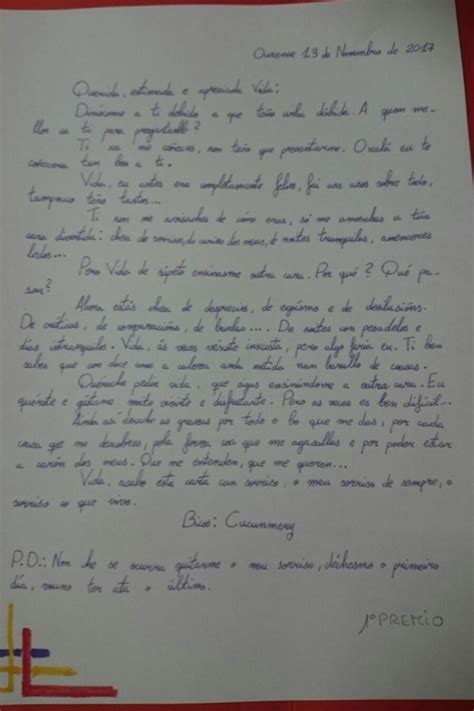 Ourense 13 de Novembro de 2017
Querida, estimada e apreciada Vida:
Dirixome a ti debido a que teño unha dúbida. A quen me-
llor ca ti para preguntarlle?
Ti xa me coñeces, non teño que presentarme. Oxalá eu te
coñecera tan ben a ti.
Vida, eu antes era completamente feliz, fai uns anos sobre todo,
tampouco teño tantos...
Ti non me avisaches de cómo eras, só me amosabas a túa
cara divertida: chea de sorrisos, do cariño dos meus, de noites tranquilas, amenceres
ledos...
Pero Vida de súpeto ensinasme outra cara. Por qué? Qué pa-
sou?
Ahora estás chea de desprecios, de egoísmo e de desilusións.
De críticas, de comparacións, de burlas.... De noites con pesadelos e
días intranquilos. Vida, ás veces inxusta, pero algo faría eu. Ti ben
sabes que con doce anos a cabeza anda metida nun barullo de cousas.
Quéroche pedir vida, que sigas ensinándome a outra cara. Eu
quérote e gústame moito vivirte e disfrutarte. Pero ás veces es ben difícil...
Aínda así douche as grazas por todo o bo que me das, por cada
cousa que me descobres, pola forza coa que me agasallas e por poder estar
a carón dos meus. Que me entenden, que me queren...
Vida, acabo esta carta cun sorriso, o meu sorriso de sempre, o
sorriso co que vivo.
Bicos: Cucunmery
P.D.: Non che se ocurra quitarme o meu sorriso, déchesmo o primeiro
día, ata o último.
1º PREMIO